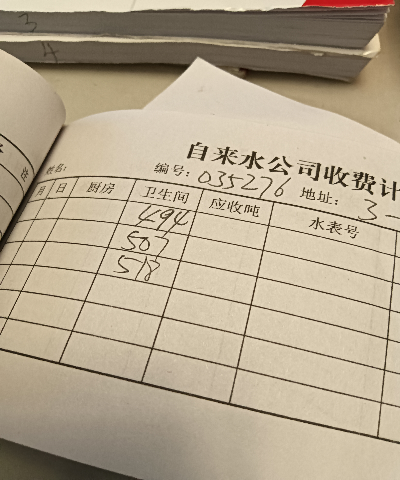 3
4
自来水公司收费计
姓名: 编号: 035276 地址: 3-
月 日 厨房 卫生间 应收吨 水表号
494
507
518